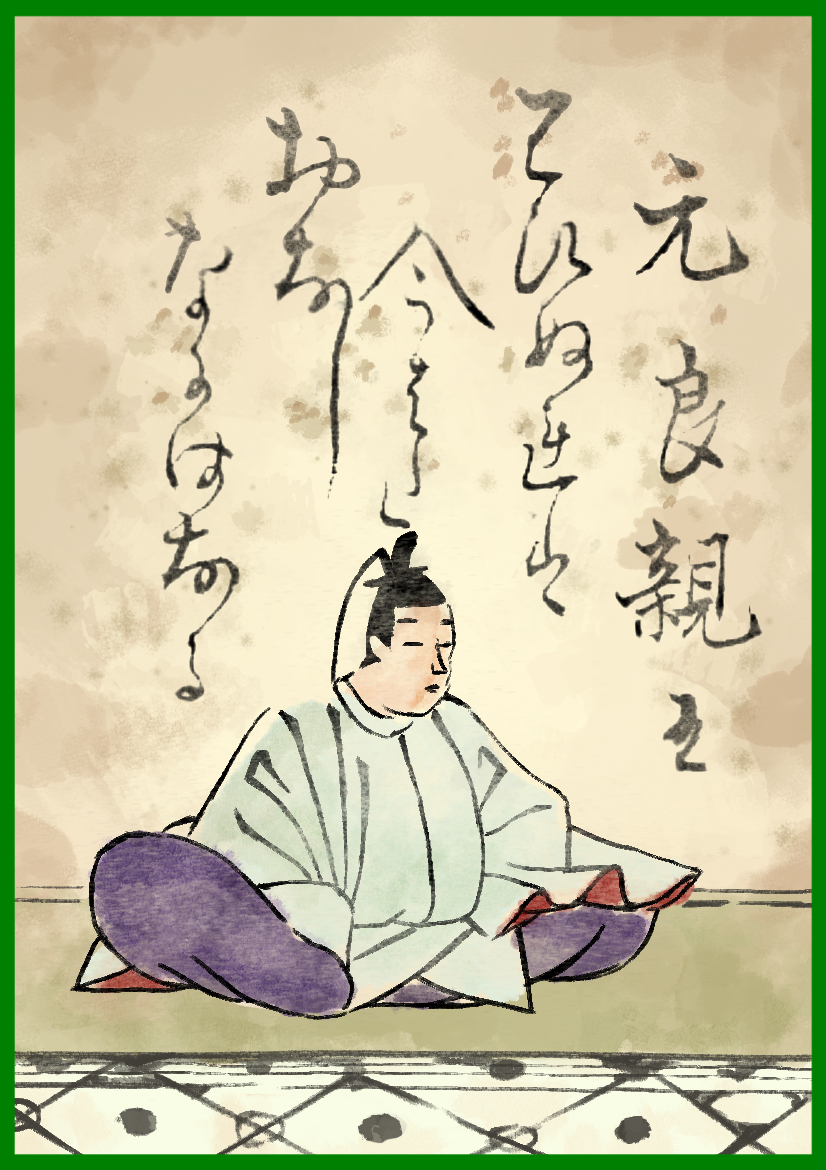 元良親王
わひぬ連は
今はた
おなし
なにはなる